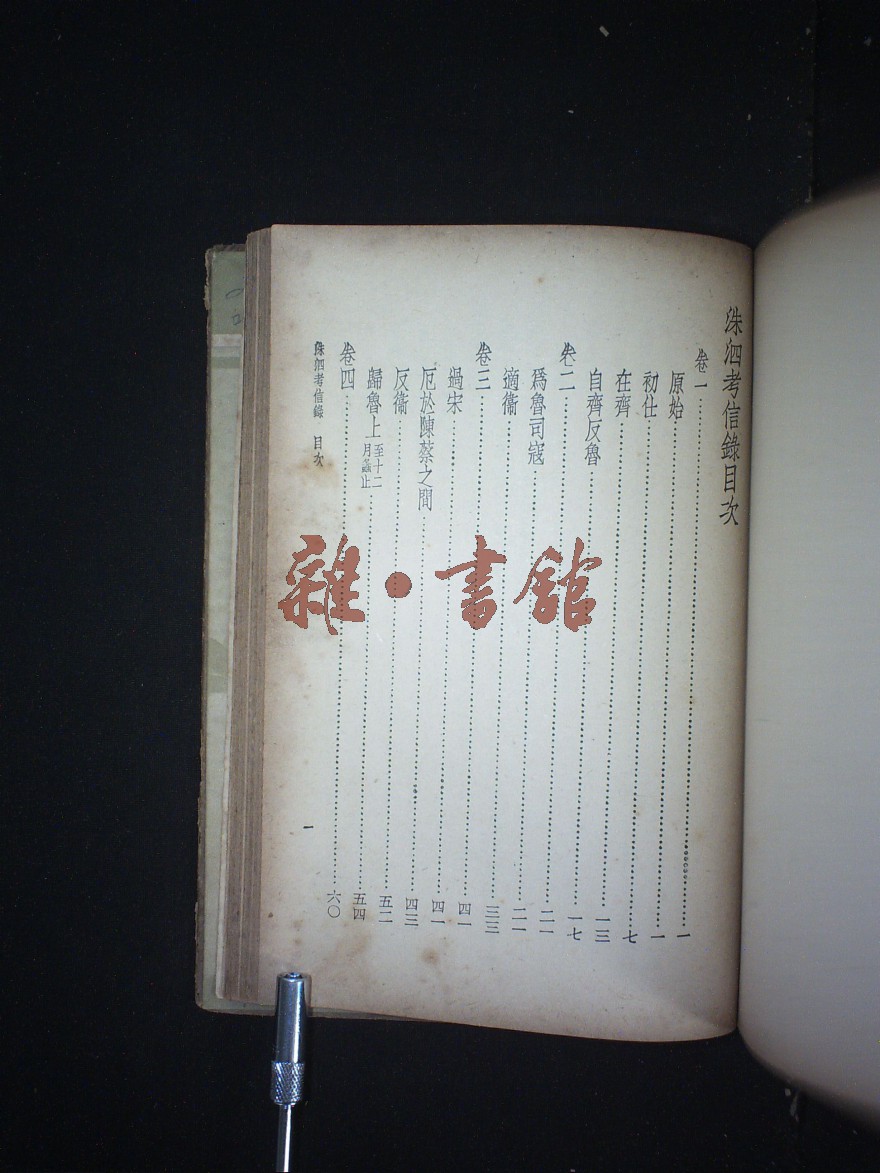 洙泗考信錄目次
卷一……一
原始……一
初仕……七
在齊……一三
自齊反魯……一七
卷二……二一
爲魯司寇……二一
適衞……三三
卷三……四一
過宋……四一
厄於陳蔡之間……四三
反衞……五二
歸魯上 至十二月螽止……五四
卷四……六〇
洙泗考信錄 目次 一
雜・書館